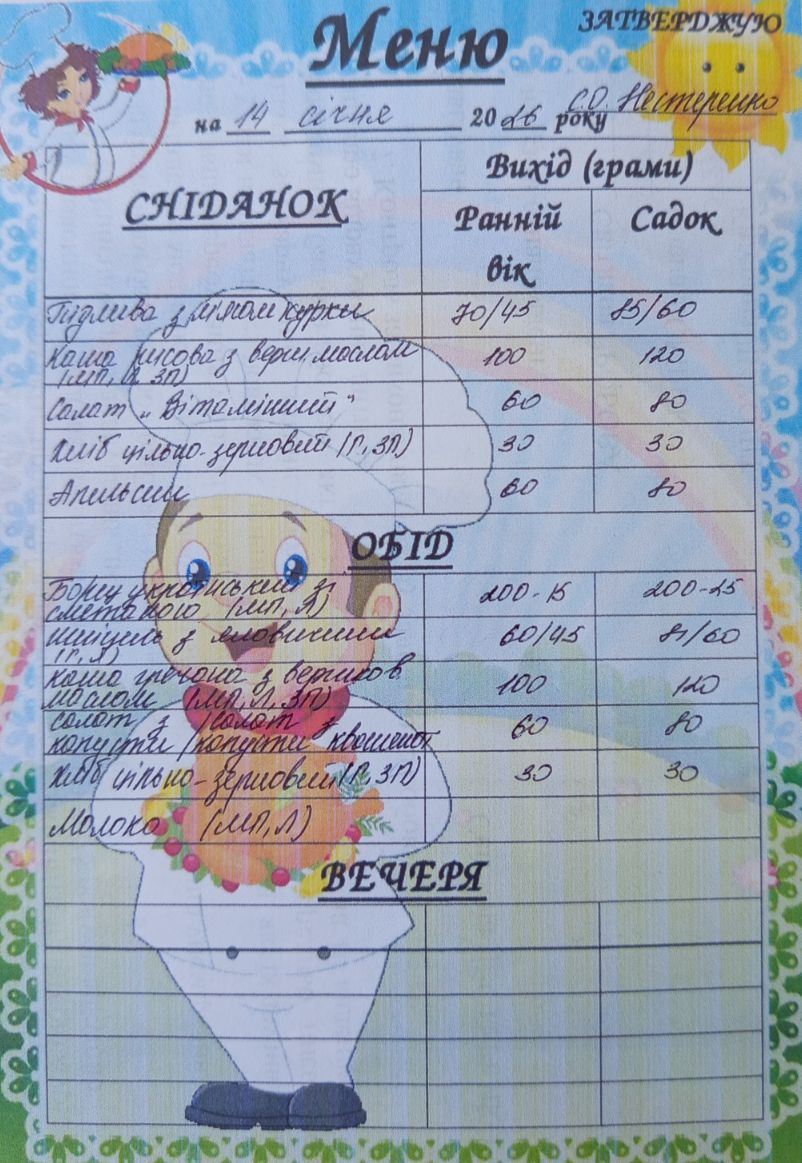 Меню
ЗАТВЕРДЖУЮ
С.О. Нестеренко
на 14 січня 2026 року
СНІДАНОК
Вихід (грами)
Ранній вік
Садок
Підлива з м'ясом курки 70/45 85/60
Каша рисова з верш маслом 100 120
(МП, Л, ЗП)
Салат „Вітамінний" 60 80
Хліб цільно-зерновий (Г, ЗП) 30 30
Апельсин 60 80
ОБІД
Борщ український зі 200-15 200-25
сметаною (МП, Л)
шніцель з яловичини 60/45 81/60
(Г, Л)
каша гречана з вершков. 100 120
маслом (МП, Л, ЗП)
салат з /салат з 60 80
капусти /капусти квашеної
Хліб цільно-зерновий (Г, ЗП) 30 30
Молоко (МП, Л)
ВЕЧЕРЯ